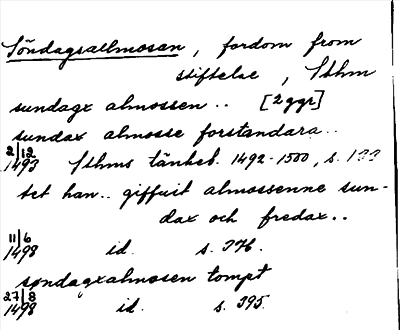 Söndagsallmosan, fordom from
stiftelse, Sthm
sundagx almossen.. [2 ggr]
sundax almosse forstandara..
2/12 1493 Sthms tänkeb. 1492-1500, s.
tet han.. giffuit almossenne sun-
dax och fredax..
11/6 1498 id. s. 376.
søndagxalmosen tompt
27/8 1498 id. s. 395.